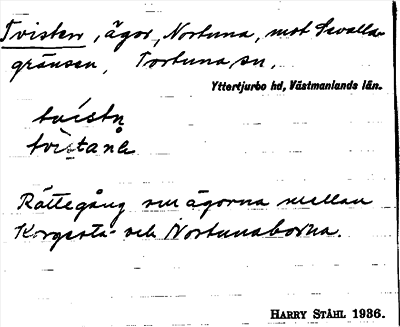 Tvisten, ägor, Nortuna, mot Sevalla-
gränsen, Tortuna sn.
Yttertjurbo hd, Västmanlands län.
tvìstn
tvìstanə
Rättegång om ägorna mellan
Korgesta- och Nortunaborna.
HARRY STÅHL 1936.